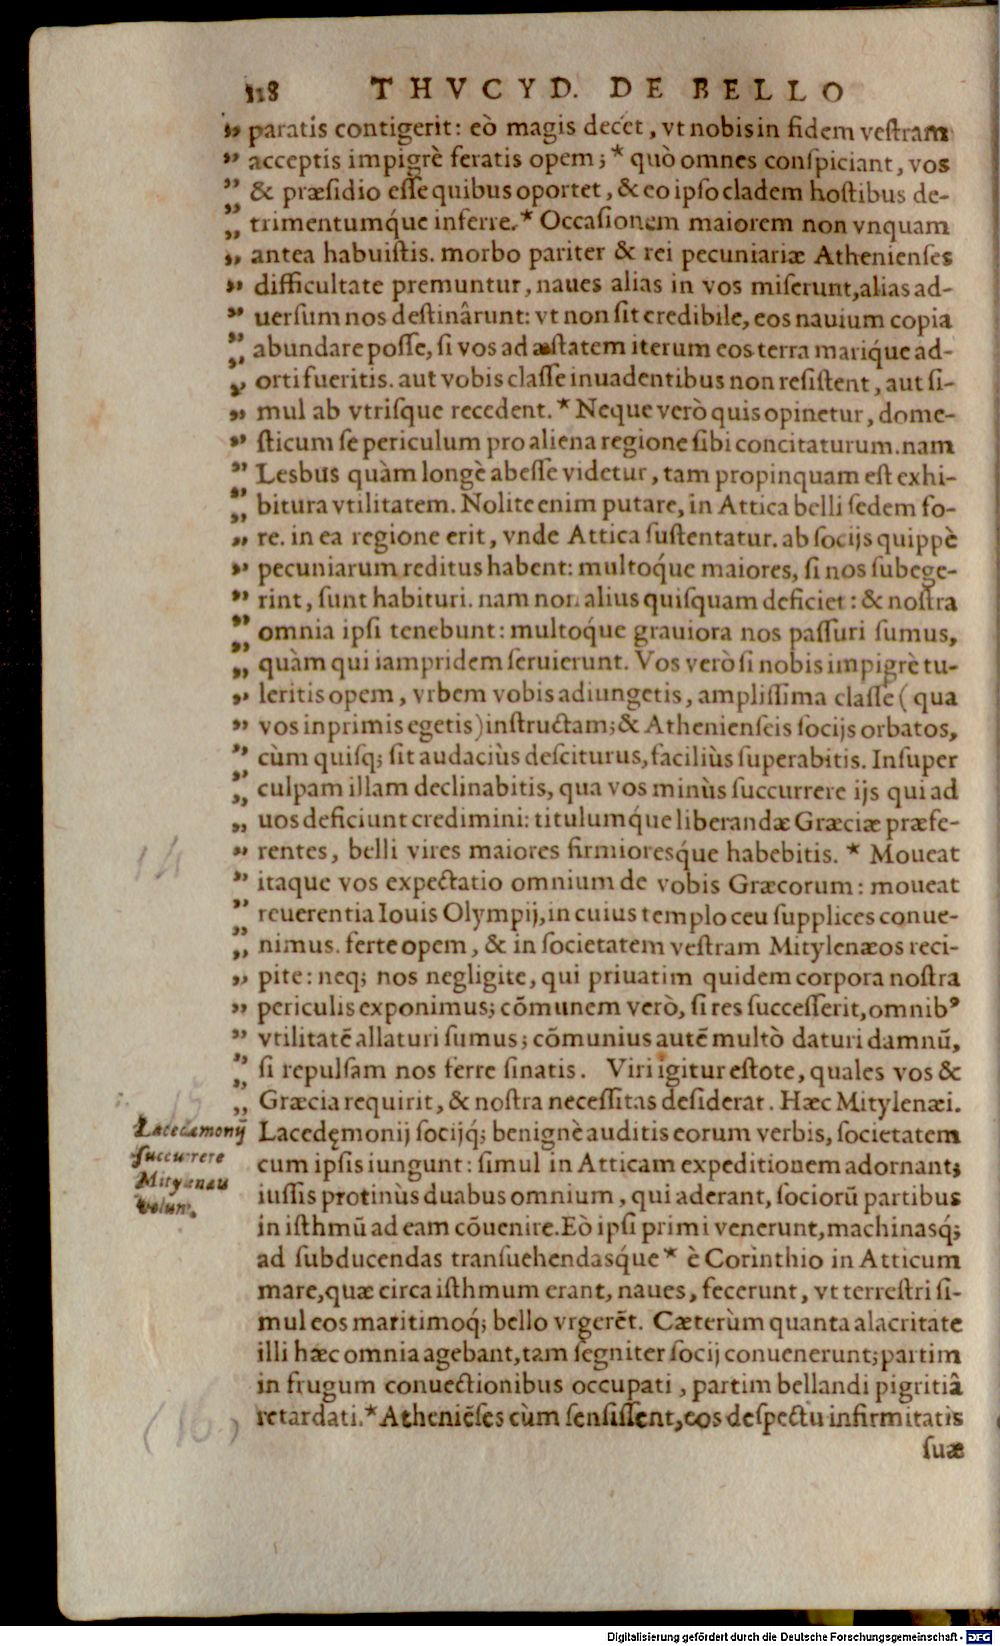 118 THVCYD. DE BELLO
„ paratis contigerit: eò magis decet, vt nobis in fidem vestram
„ acceptis impigrè feratis opem; * quò omnes conspiciant, vos
„ & præsidio esse quibus oportet, & eo ipso cladem hostibus de-
„ trimentumq́ue inferre. * Occasionem maiorem non vnquam
„ antea habuistis. morbo pariter & rei pecuniariæ Athenienses
„ difficultate premuntur, naues alias in vos miserunt, alias ad-
„ uersum nos destinârunt: vt non sit credibile, eos nauium copia
„ abundare posse, si vos ad æstatem iterum eos terra mariq́ue ad-
„ orti fueritis. aut vobis classe inuadentibus non resistent, aut si-
„ mul ab vtrisque recedent. * Neque verò quis opinetur, dome-
„ sticum se periculum pro aliena regione sibi concitaturum. nam
„ Lesbus quàm longè abesse videtur, tam propinquam est exhi-
„ bitura vtilitatem. Nolite enim putare, in Attica belli sedem fo-
„ re. in ea regione erit, vnde Attica sustentatur. ab socijs quippè
„ pecuniarum reditus habent: multoq́ue maiores, si nos subege-
„ rint, sunt habituri. nam non alius quisquam deficiet: & nostra
„ omnia ipsi tenebunt: multoq́ue grauiora nos passuri sumus,
„ quàm qui iampridem seruierunt. Vos verò si nobis impigrè tu-
„ leritis opem, vrbem vobis adiungetis, amplissima classe (qua
„ vos inprimis egetis) instructam; & Athenienseis socijs orbatos,
„ cùm quisq; sit audaciùs desciturus, faciliùs superabitis. Insuper
„ culpam illam declinabitis, qua vos minùs succurrere ijs qui ad
„ uos deficiunt credimini: titulumq́ue liberandæ Græciæ præfe-
„ rentes, belli vires maiores firmioresq́ue habebitis. * Moueat
14
„ itaque vos expectatio omnium de vobis Græcorum: moueat
„ reuerentia Iouis Olympij, in cuius templo ceu supplices conue-
„ nimus. ferte opem, & in societatem vestram Mitylenæos reci-
„ pite: neq; nos negligite, qui priuatim quidem corpora nostra
„ periculis exponimus; cõmunem verò, si res successerit, omnibꝰ
„ vtilitatẽ allaturi sumus; cõmunius autẽ multò daturi damnũ,
„ si repulsam nos ferre sinatis. Viri igitur estote, quales vos &
„ Græcia requirit, & nostra necessitas desiderat. Hæc Mitylenæi.
15
Lacedæmonij
succurrere
Mitylenæis
volunt.
Lacedęmonij socijq́; benignè auditis eorum verbis, societatem
cum ipsis iungunt: simul in Atticam expeditionem adornant;
iussis protinùs duabus omnium, qui aderant, sociorũ partibus
in isthmũ ad eam cõuenire. Eò ipsi primi venerunt, machinasq́;
ad subducendas transuehendasq́ue * è Corinthio in Atticum
mare, quæ circa isthmum erant, naues, fecerunt, vt terrestri si-
mul eos maritimoq́; bello vrgerẽt. Cæterùm quanta alacritate
illi hæc omnia agebant, tam segniter socij conuenerunt; partim
in frugum conuectionibus occupati, partim bellandi pigritiâ
retardati. * Atheniẽses cùm sensissent, eos despectu infirmitatis
(16.)
suæ
Digitalisierung gefördert durch die Deutsche Forschungsgemeinschaft - DFG